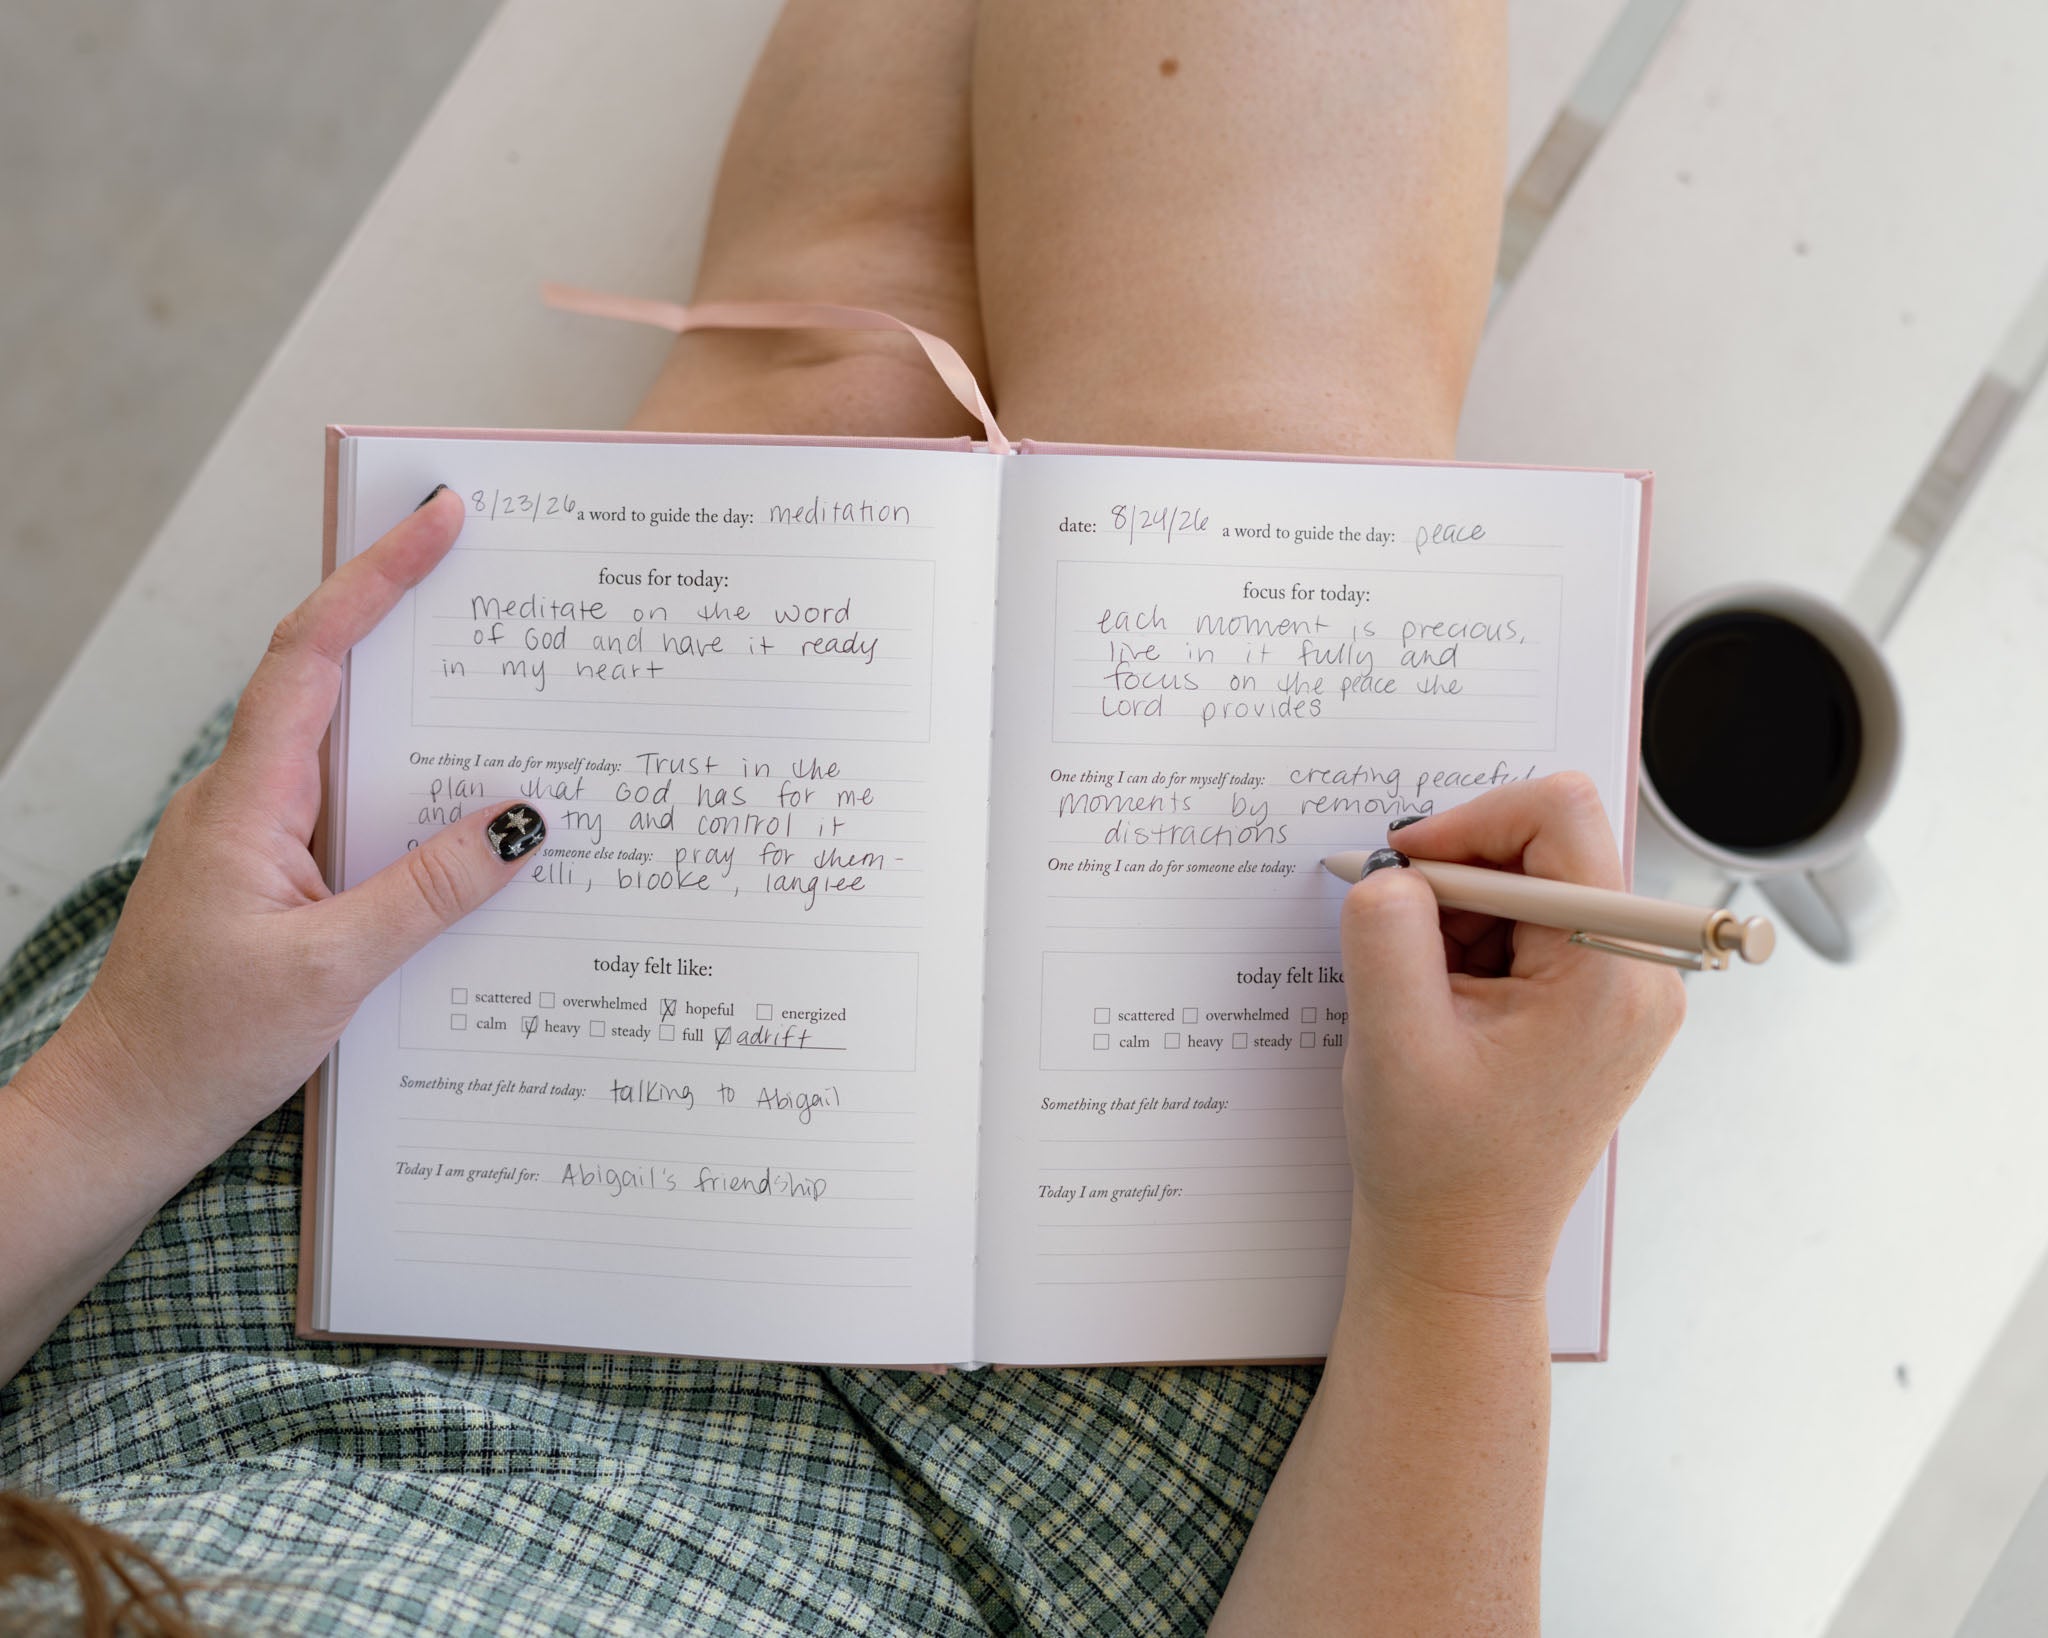 8/23/26 a word to guide the day: meditation
focus for today:
Meditate on the word
of God and have it ready
in my heart
One thing I can do for myself today: Trust in the
plan that God has for me
and try and control it
someone else today: pray for them -
elli, brooke, langlee
today felt like:
scattered overwhelmed hopeful energized
calm heavy steady full adrift
Something that felt hard today: talking to Abigail
Today I am grateful for: Abigail's friendship
date: 8/24/26 a word to guide the day: peace
focus for today:
each moment is precious,
live in it fully and
focus on the peace the
Lord provides
One thing I can do for myself today: creating peaceful
moments by removing
distractions
One thing I can do for someone else today:
today felt like
scattered overwhelmed hop
calm heavy steady full
Something that felt hard today:
Today I am grateful for: